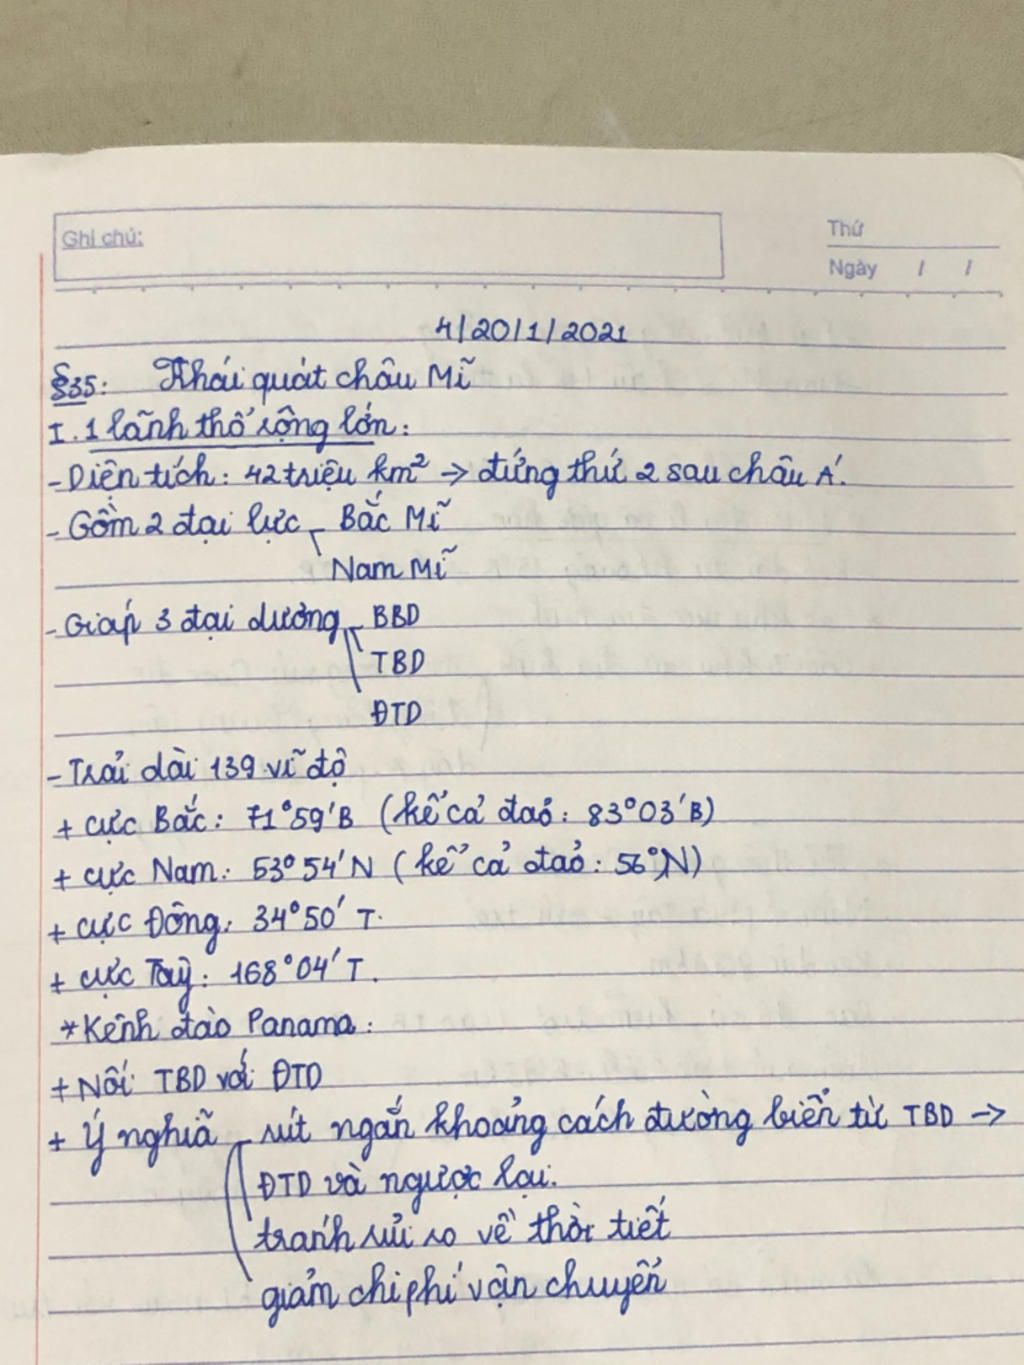 Ghi chú:
Thứ
Ngày / /
4/20/1/2021
§35: Khái quát châu Mĩ
I. 1 lãnh thổ rộng lớn:
- Diện tích: 42 triệu km² → đứng thứ 2 sau châu Á.
- Gồm 2 đại lục - Bắc Mĩ
Nam Mĩ
- Giáp 3 đại dương - BBD
TBD
ĐTD
- Trải dài 139 vĩ độ
+ cực Bắc: 71°59'B (kể cả đảo: 83°03'B)
+ cực Nam: 53°54'N (kể cả đảo: 56°N)
+ cực Đông: 34°50' T.
+ cực Tây: 168°04' T.
* Kênh đào Panama:
+ Nối TBD với ĐTD
+ Ý nghĩa - rút ngắn khoảng cách đường biển từ TBD →
ĐTD và ngược lại.
tránh rủi ro về thời tiết
giảm chi phí vận chuyển